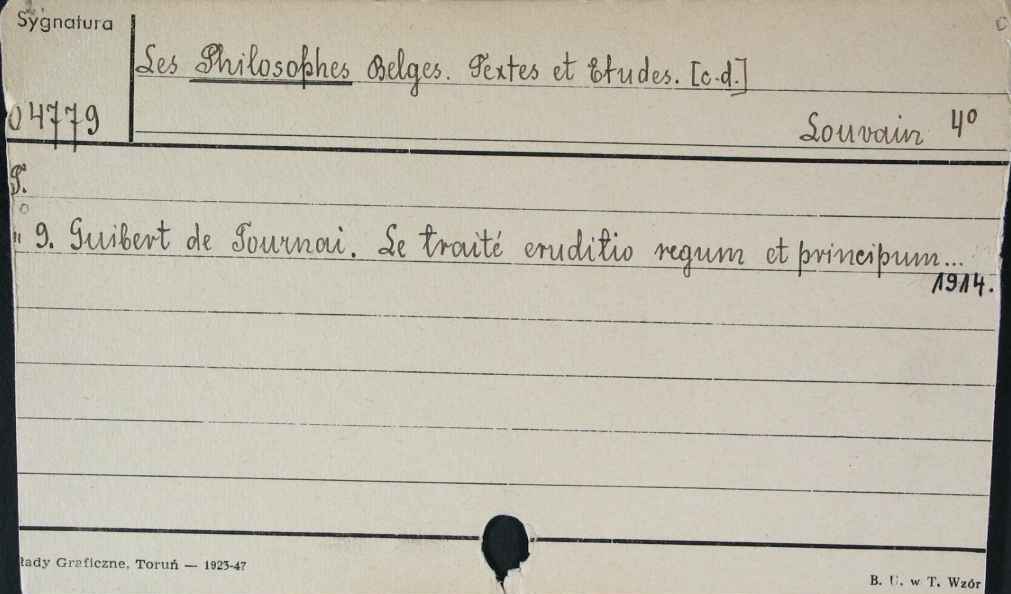 Sygnatura
Les Philosophes Belges. Textes et Etudes. [c.d.]
04779
Louvain 4°
T.
" 9. Guibert de Tournai. Le traité eruditio regum et principum...
1914.
łady Graficzne, Toruń — 1923-47
B. U. w T. Wzór